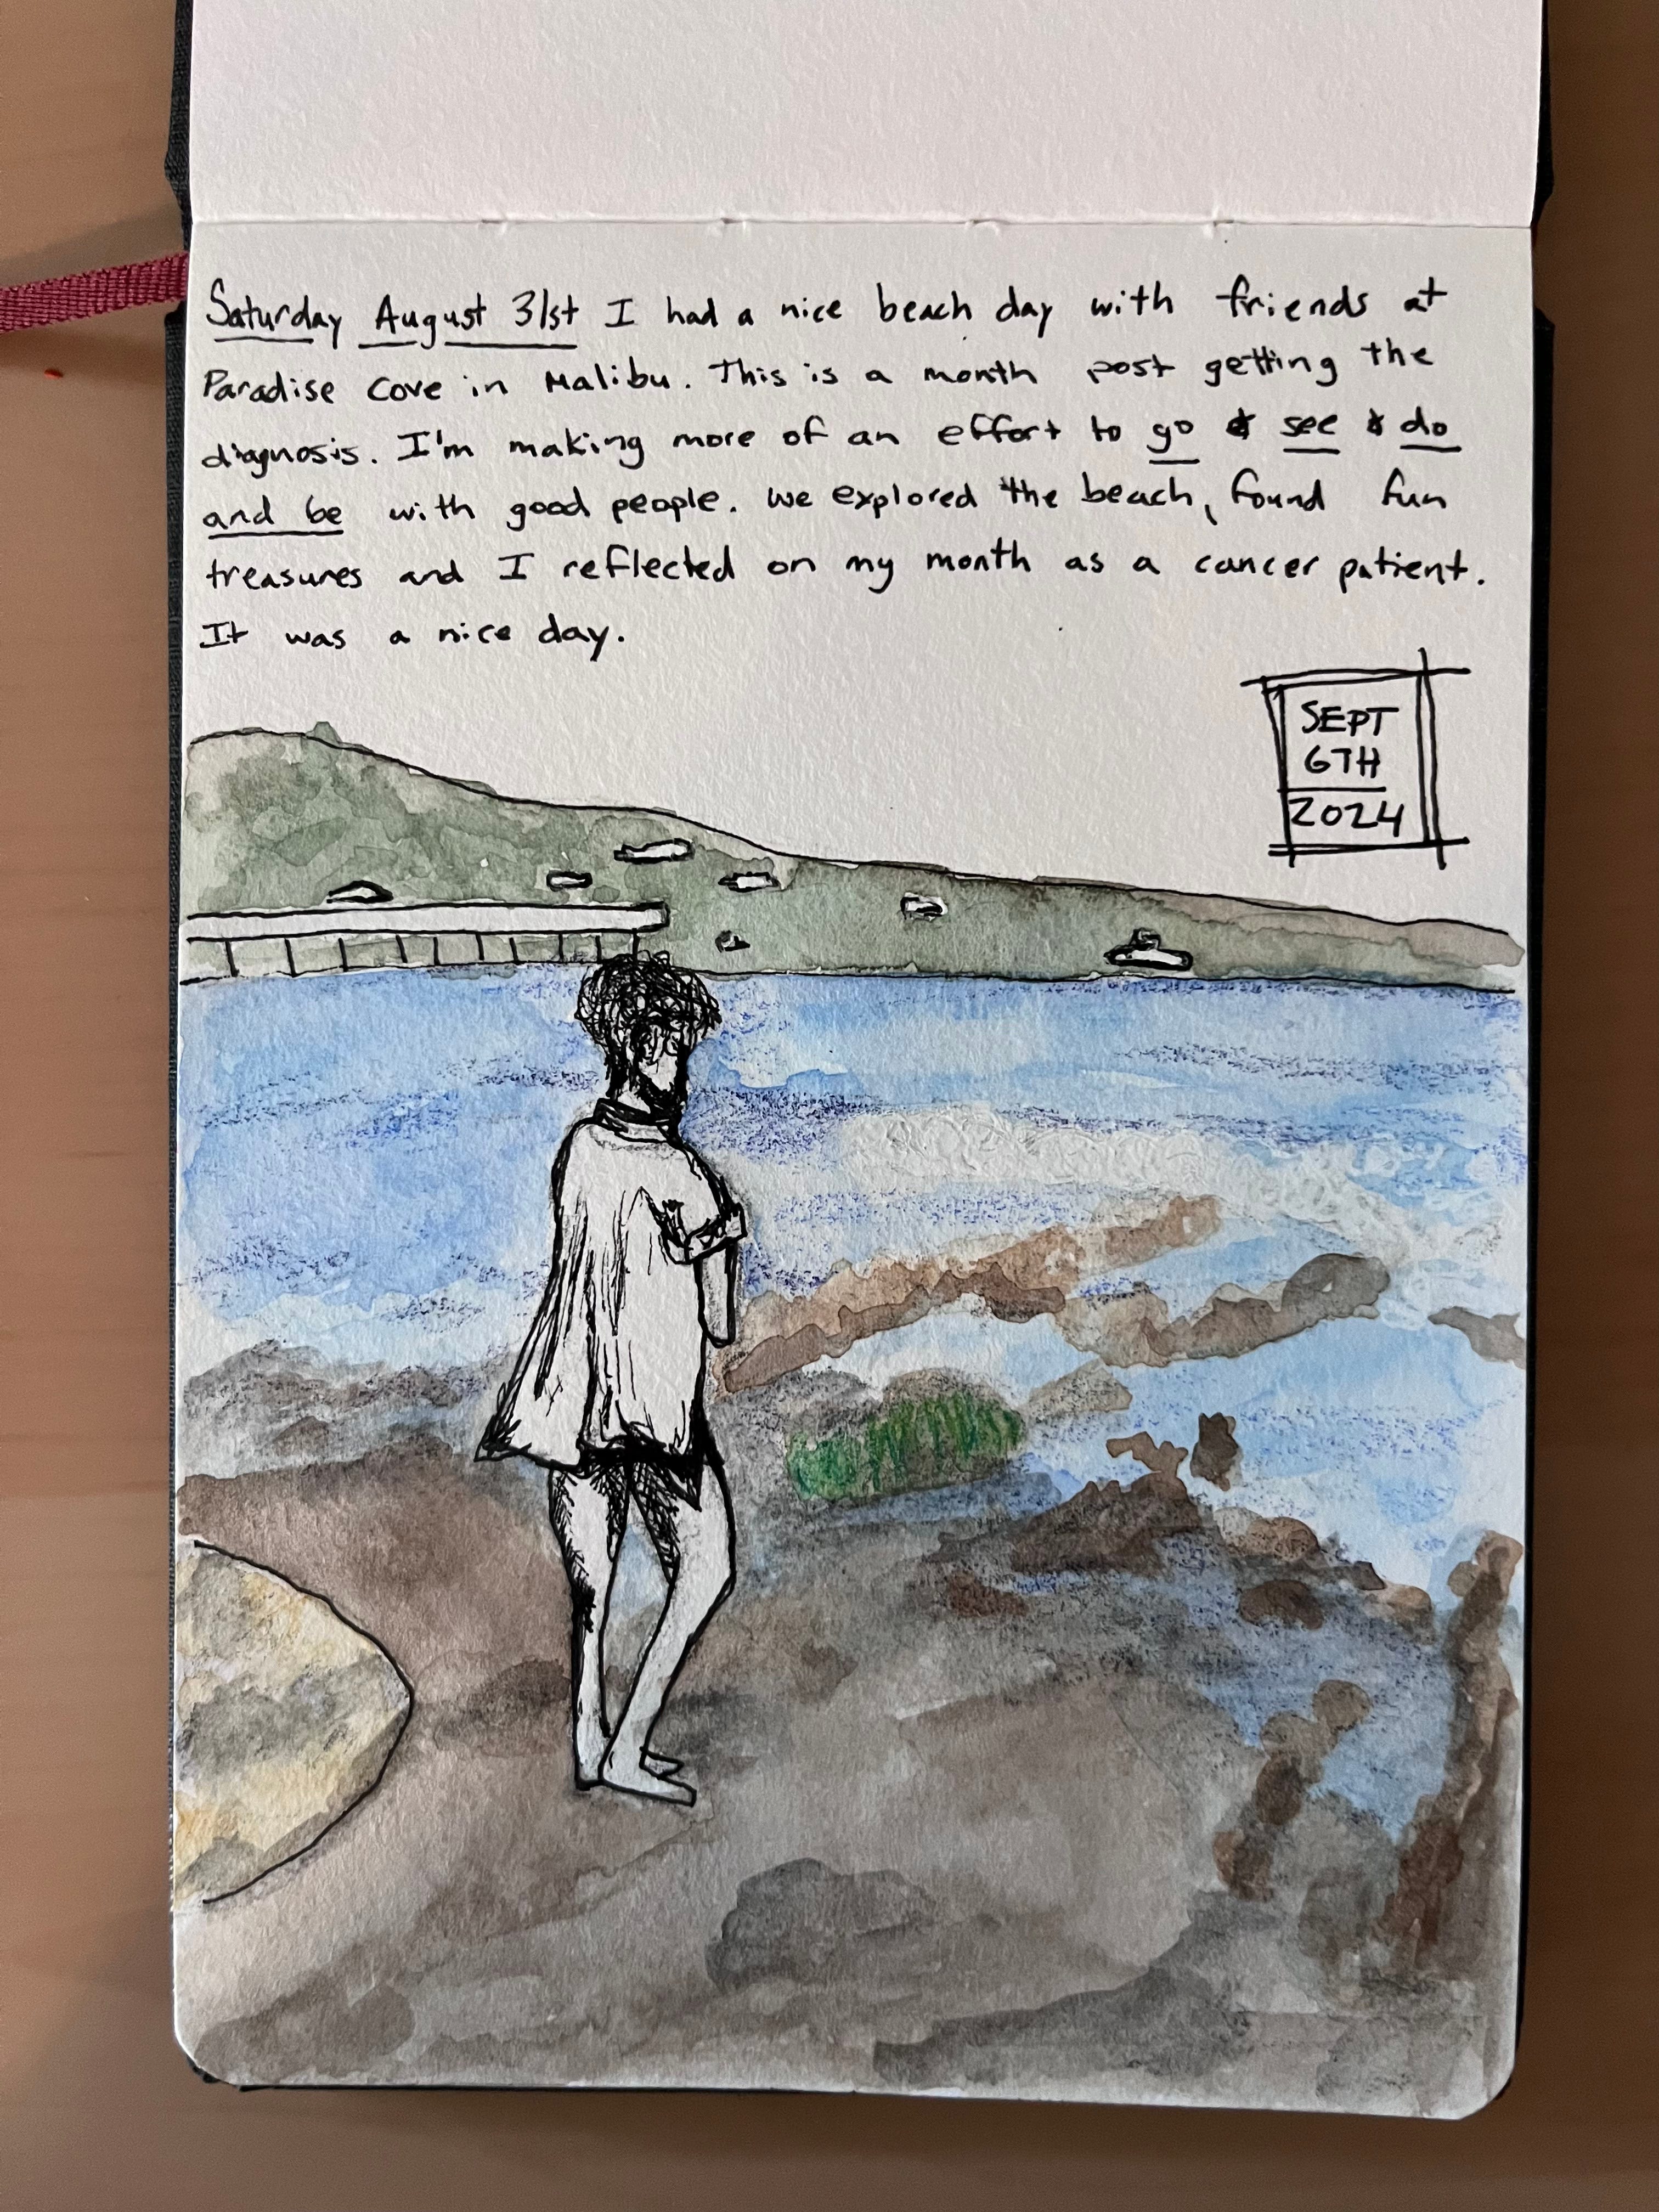 Saturday August 31st I had a nice beach day with friends at
Paradise Cove in Malibu. This is a month post getting the
diagnosis. I'm making more of an effort to go & see & do
and be with good people. We explored the beach, found fun
treasures and I reflected on my month as a cancer patient.
It was a nice day.
SEPT
6TH
2024